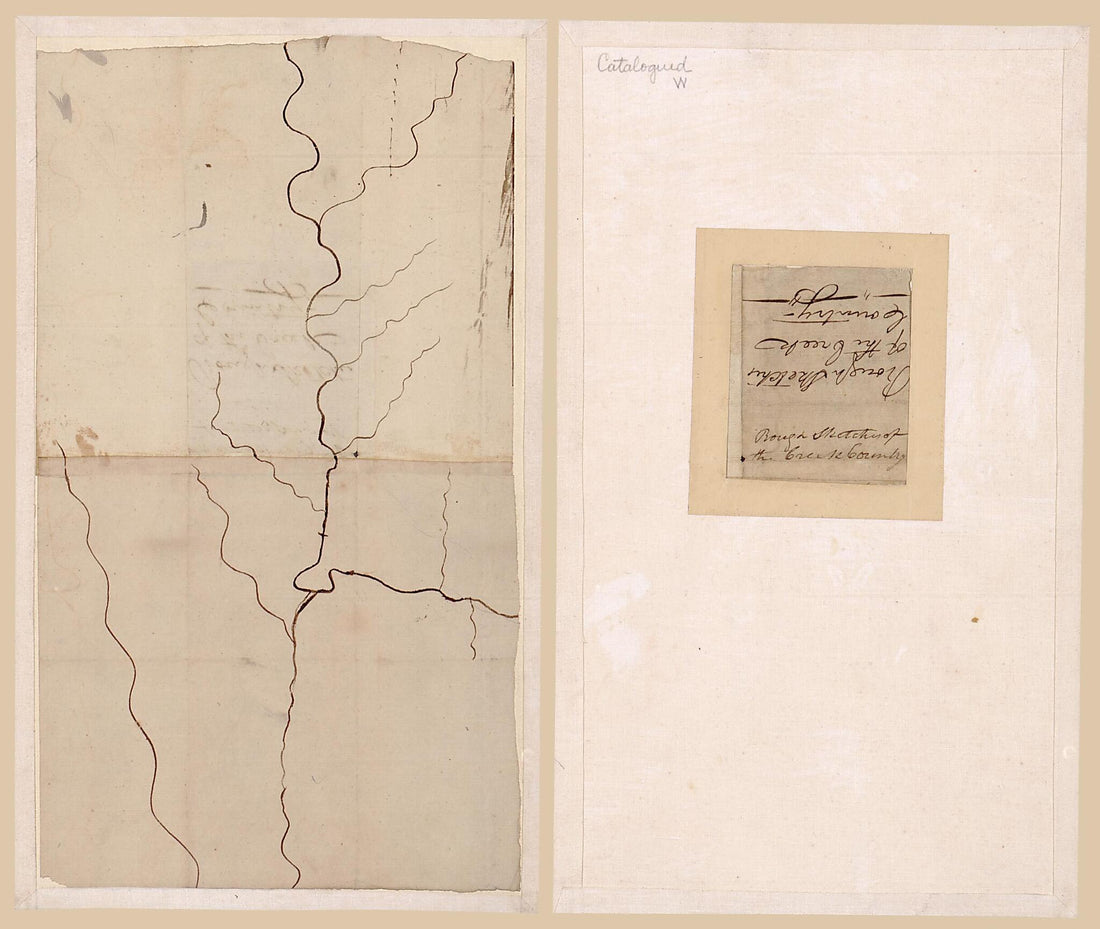 Catalogued
W
Rough Sketches
of the Creek
Country
Rough Sketches of
the Creek Country